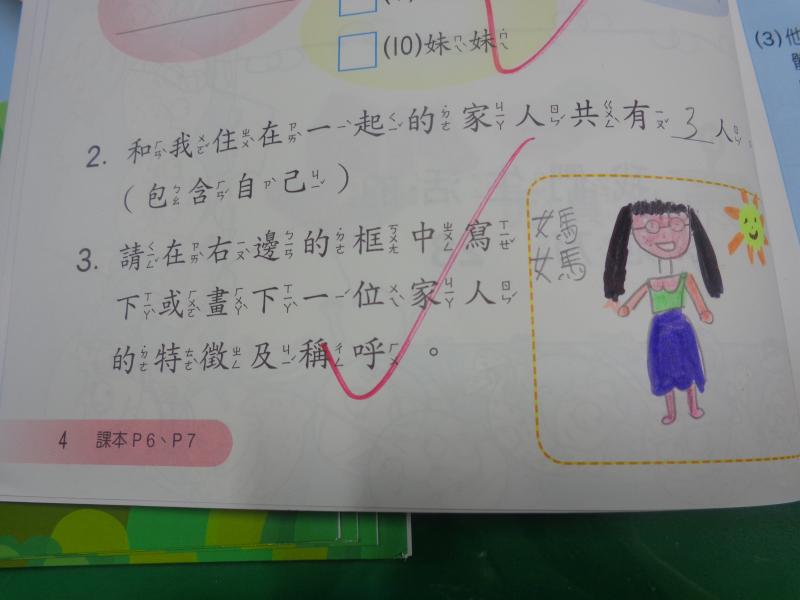 (10)妹妹
2. 和我住在一起的家人共有 3 人。
(包含自己)
3. 請在右邊的框中寫
下或畫下一位家人
的特徵及稱呼。
媽
媽
4 課本P6、P7
(3)他